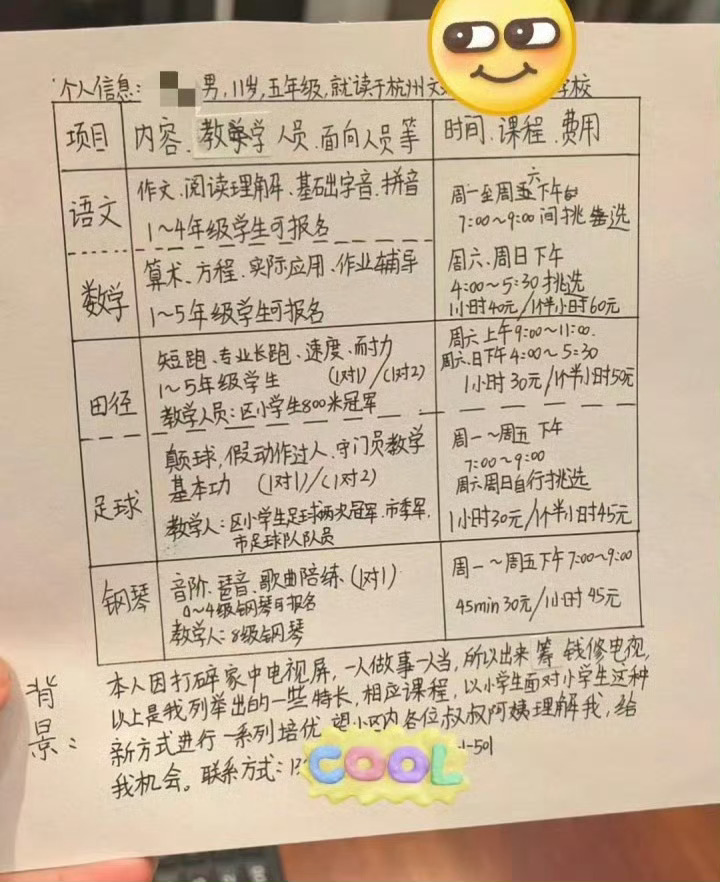 个人信息: 男,11岁,五年级,就读于杭州文 学校
项目 内容、教学人员、面向人员等 时间、课程、费用
语文 作文、阅读理解、基础字音、拼音
1~4年级学生可报名
周一至周六下午
7:00~9:00间挑选
数学 算术、方程、实际应用、作业辅导
1~5年级学生可报名
周六、周日下午
4:00~5:30挑选
1小时40元/1个半小时60元
田径 短跑、专业长跑、速度、耐力
1~5年级学生 (1对1)/(1对2)
教学人员:区小学生800米冠军
周六上午9:00~11:00.
周六、日下午4:00~5:30
1小时30元/1个半小时50元
足球 颠球,假动作过人、守门员教学
基本功 (1对1)/(1对2)
教学人:区小学生足球两次冠军、市季军、
市足球队队员
周一~周五下午
7:00~9:00
周六周日自行挑选
1小时30元/1个半小时45元
钢琴 音阶、琶音、歌曲陪练、(1对1)
0~4级钢琴可报名
教学人:8级钢琴
周一~周五下午7:00~9:00
45min30元/1小时45元
背景:
本人因打碎家中电视屏,一人做事一人当,所以出来筹钱修电视,
以上是我列举出的一些特长,相应课程,以小学生面对小学生这种
新方式进行一系列培优,望小区内各位叔叔阿姨理解我,给
我机会。联系方式:13 -501
COOL